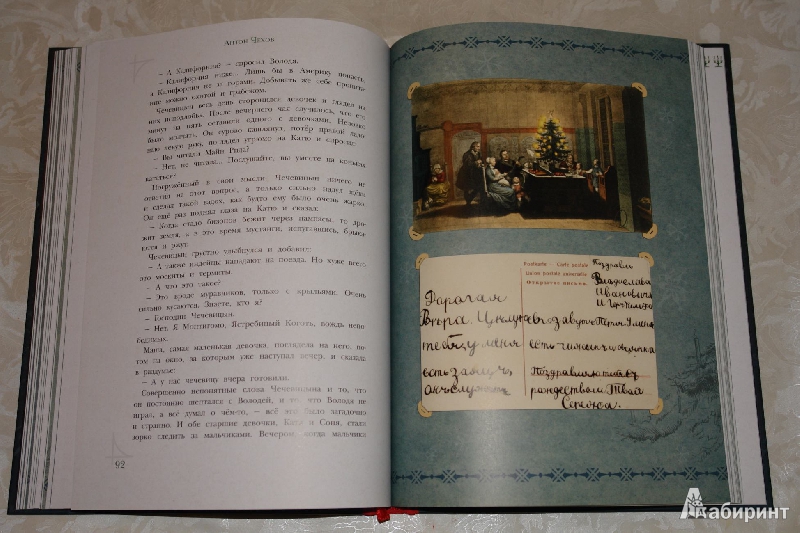 Антон Чехов
– А Калифорния? – спросил Володя.
– Калифорния ниже... Лишь бы в Америку попасть,
а Калифорния не за горами. Добывать же себе пропита-
ние можно охотой и грабежом.
Чечевицын весь день сторонился девочек и глядел на
них исподлобья. После вечернего чая случилось, что его
минут на пять оставили одного с девочками. Неловко
было молчать. Он сурово кашлянул, потёр правой ладо-
нью левую руку, поглядел угрюмо на Катю и спросил:
– Вы читали Майн Рида?
– Нет, не читала... Послушайте, вы умеете на коньках
кататься?
Погружённый в свои мысли, Чечевицын ничего не
ответил на этот вопрос, а только сильно надул щёки
и сделал такой вздох, как будто ему было очень жарко.
Он ещё раз поднял глаза на Катю и сказал:
– Когда стадо бизонов бежит через пампасы, то дро-
жит земля, а в это время мустанги, испугавшись, брыка-
ются и ржут.
Чечевицын грустно улыбнулся и добавил:
– А также индейцы нападают на поезда. Но хуже всего
это москиты и термиты.
– А что это такое?
– Это вроде муравчиков, только с крыльями. Очень
сильно кусаются. Знаете, кто я?
– Господин Чечевицын.
– Нет. Я Монтигомо, Ястребиный Коготь, вождь непо-
бедимых.
Маша, самая маленькая девочка, поглядела на него, по-
том на окно, за которым уже наступал вечер, и сказала
в раздумье:
– А у нас чечевицу вчера готовили.
Совершенно непонятные слова Чечевицына и то, что
он постоянно шептался с Володей, и то, что Володя не
играл, а всё думал о чём-то, – всё это было загадочно
и странно. И обе старшие девочки, Катя и Соня, стали
зорко следить за мальчиками. Вечером, когда мальчики
92
Postkarte – Carte postale
Открытое письмо.
Поздравль
Владислава
Ивановича
Дарагая
Вера. Целую
тебя у меня
есть заяц
Поздравляю тебя с
рождеством. Твой
Сережа.
Лабиринт